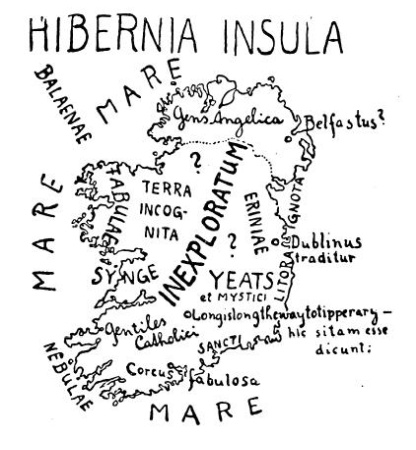 HIBERNIA INSULA
BALAENAE
MARE
Gens Angelica
Belfastus?
?
MARE
FABULAE
TERRA
INCOG-
NITA
INEXPLORATUM
ERINIAE
LITORA IGNOTA
?
Dublinus
traditur
SYNGE
YEATS
et MYSTICI
Longislongthewaytotipperary—
hic sitam esse
dicunt:
Gentiles
Catholici
SANCTI
NEBULAE
Corcus
fabulosa
MARE